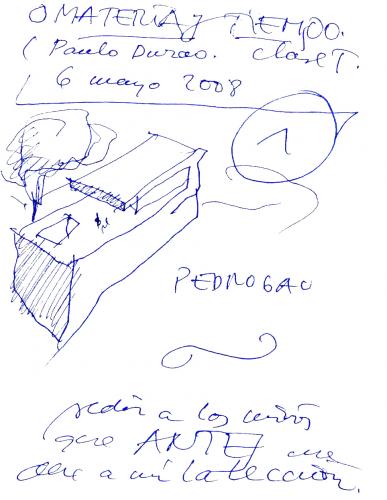 O MATERIA y TIEMPO.
(Paulo Durao. Clase T.
6 mayo 2008
1
PEDROGAO
pedir a los niños
que ANTES me
den a mi la lección.